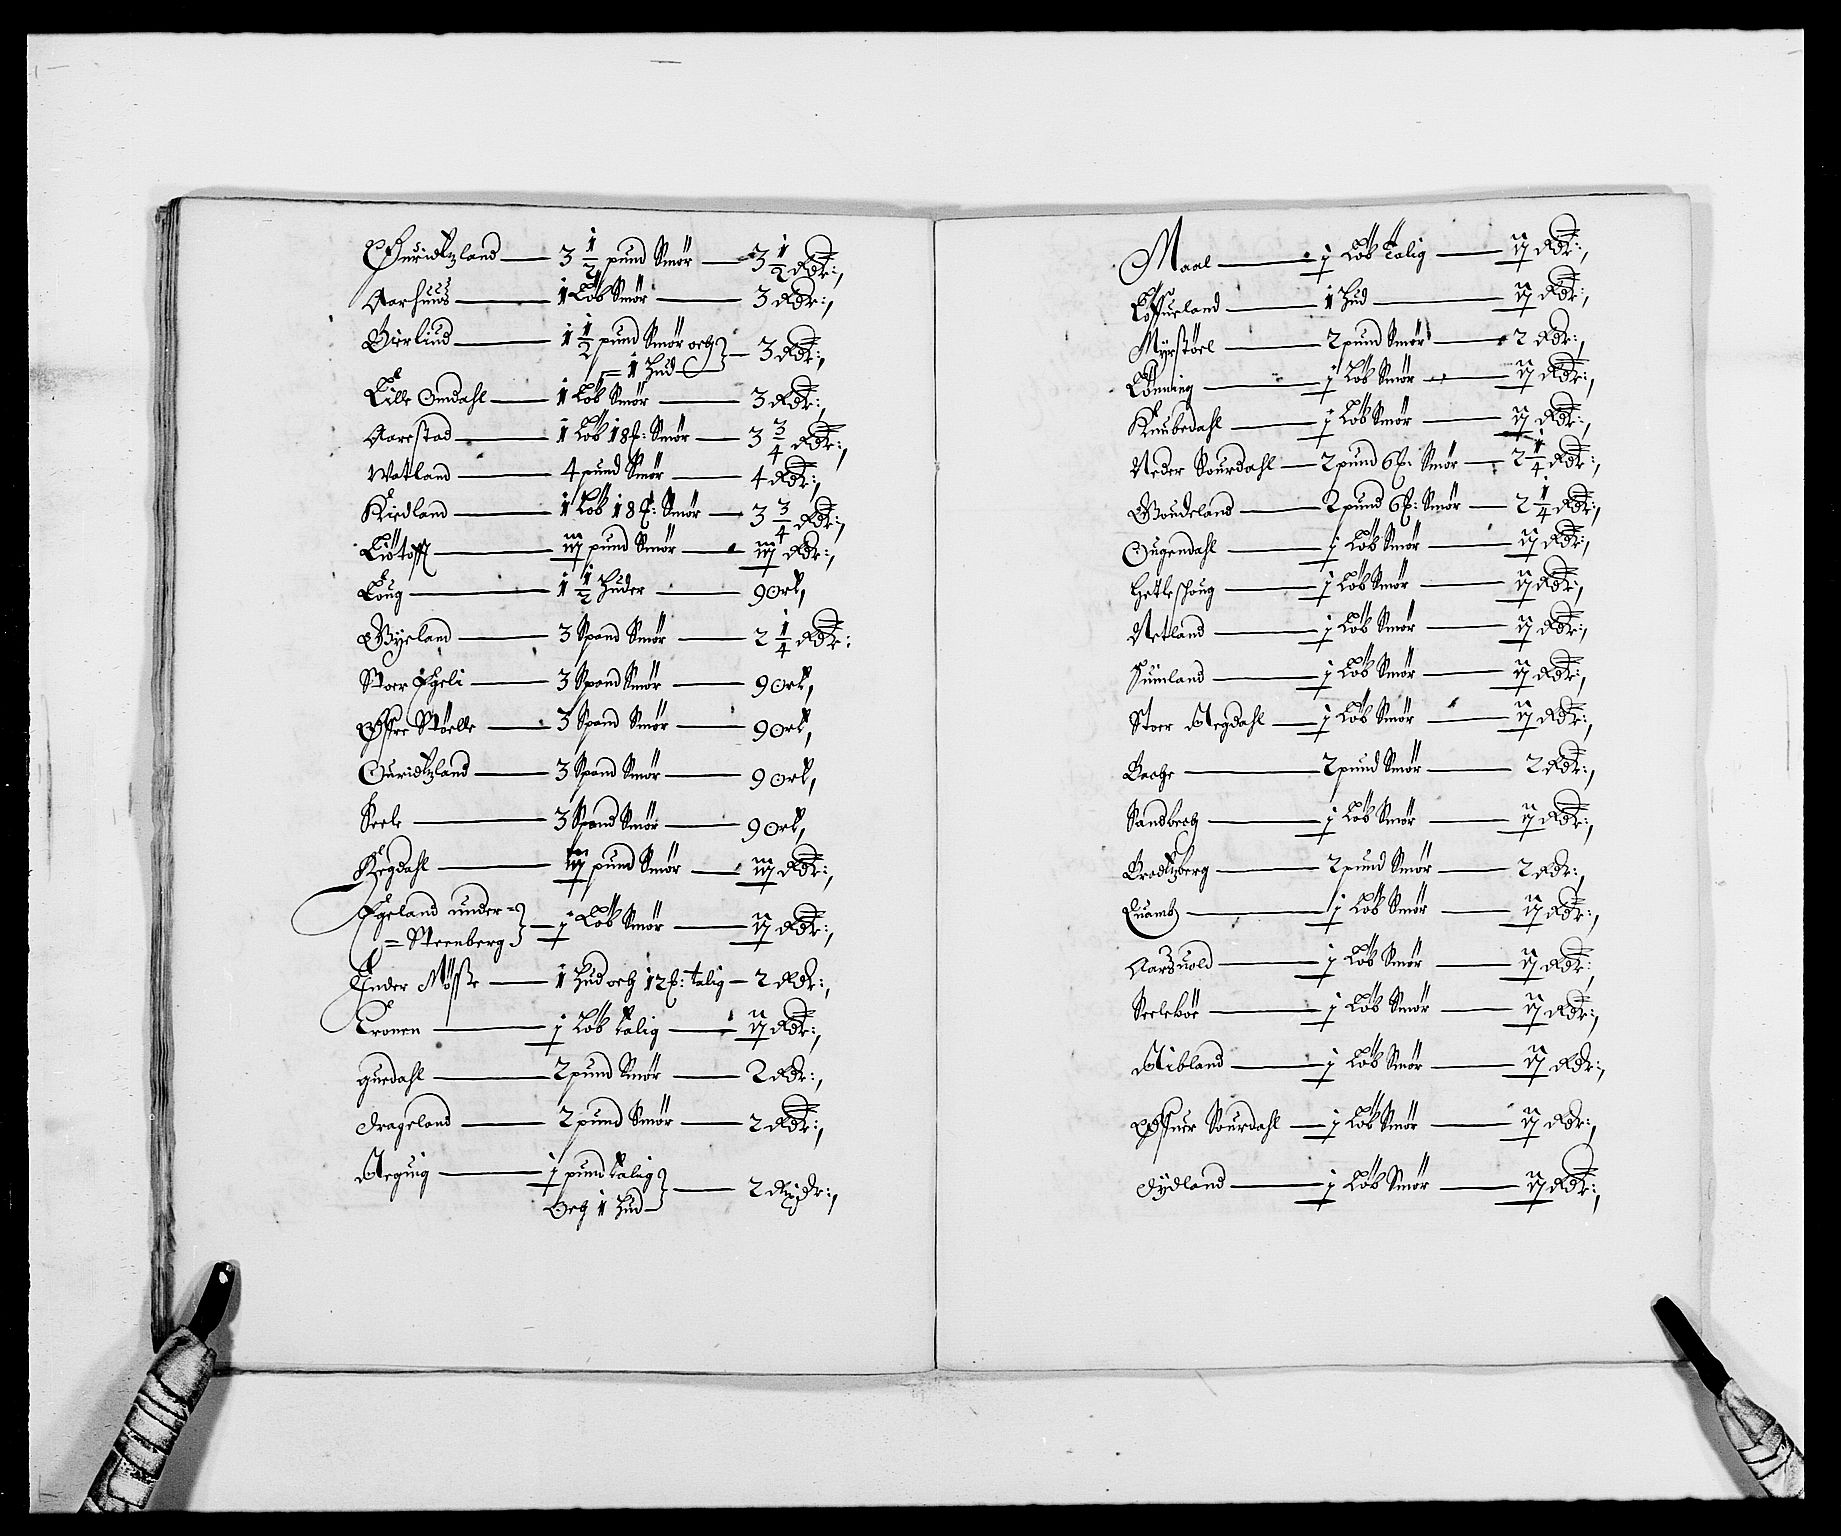 Guridtzland — 3 1/2 pund Smör — 3 1/2 Rdr:,
Aarhuus — 1 Löb Smör — 3 Rdr:,
Bierlind — 1 1/2 pund Smör och
= 1 Hud — 3 Rdr:,
Lille Omdahl — 1 Löb Smör — 3 Rdr:,
Aarestad — 1 Löb 18 £: Smör — 3 3/4 Rdr:,
Watland — 4 pund Smör — 4 Rdr:,
Kiedland — 1 Löb 18 £: Smör — 3 3/4 Rdr:,
iij pund Smör — iij Rdr:,
Loug — 1 1/2 Huder — 9 ort,
Byeland — 3 Spand Smör — 2 1/4 Rdr:
Stoer Egeli — 3 Spand Smör — 9 ort,
Öffre Stöelle — 3 Spand Smör — 9 ort,
Guridtzland — 3 Spand Smör — 9 ort,
Seele — 3 Spand Smör — 9 ort,
Regdahl — iij pund Smör — iij Rdr:,
Egeland under =
= Steenberg — j Löb Smör — ij Rdr:,
Inder — 1 Hud och 12 £: talig — 2 Rdr:,
Tronen — j Löb talig — ij Rdr:,
guedahl — 2 pund Smör — 2 Rdr:,
Drageland — 2 pund Smör — 2 Rdr:,
Aeguig — j pund talig
Och 1 Hud — 2 Rixdr:,
Maal — j Löb talig — ij Rdr:,
Löffueland — 1 Hud — ij Rdr:,
Myrstöel — 2 pund Smör — 2 Rdr:,
Lönning — j Löb Smör — ij Rdr:,
Knubedahl — j Löb Smör — ij Rdr:,
Neder Sourdahl — 2 pund 6 £: Smör — 2 1/4 Rdr:,
Goudeland — 2 pund 6 £: Smör — 2 1/4 Rdr:,
Ougendahl — j Löb Smör — ij Rdr:,
Hetleshoug — j Löb Smör — ij Rdr:,
Netland — j Löb Smör — ij Rdr:,
Sumland — j Löb Smör — ij Rdr:,
Stoer Aegdahl — j Löb Smör — ij Rdr:,
Bache — 2 pund Smör — 2 Rdr:,
Sandbech — j Löb Smör — ij Rdr:,
Brodtzberg — 2 pund Smör — 2 Rdr:,
Quamb — j Löb Smör — ij Rdr:,
Aarsuold — j Löb Smör — ij Rdr:
Seeleböe — j Löb Smör — ij Rdr:,
Aibland — j Löb Smör — ij Rdr:,
Öffuer Sourdahl — j Löb Smör — ij Rdr:,
Dydland — j Löb Smör — ij Rdr:,